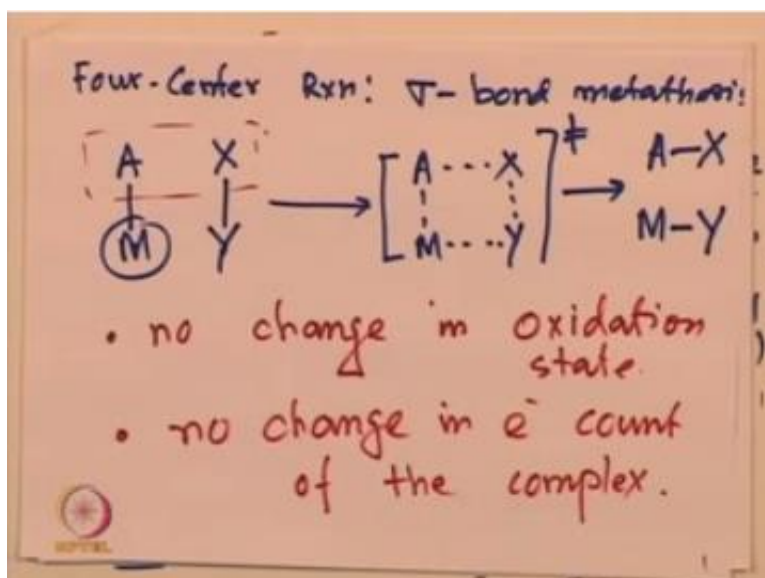 Four-Center Rxn: σ-bond metathesis
A X A---X ≠ A-X
M Y M---Y M-Y
• no change in oxidation
state.
• no change in e⁻ count
of the complex.
NPTEL